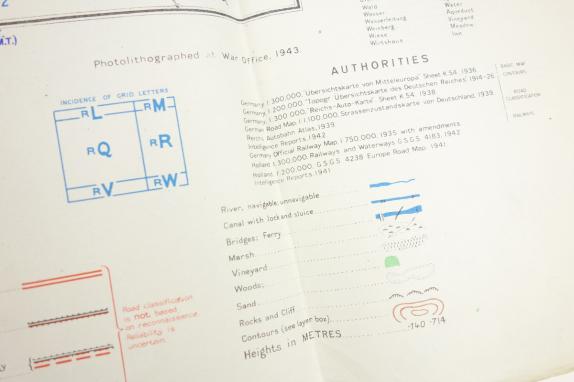 Wald
Wasser Water
Wasserleitung Aqueduct
Weinberg Vineyard
Wiese Meadow
Wirtshaus Inn
Photolithographed at War Office, 1943
AUTHORITIES
Germany 1:300,000, "Übersichtskarte von Mitteleuropa" Sheet K 54, 1936
Germany 1:200,000, "Topogr Übersichtskarte des Deutschen Reiches" 1914-26
Germany 1:300,000, "Reichs-Auto-Karte" Sheet K 54, 1938
German Road Map 1:1,100,000, Strassenzustandskarte von Deutschland, 1939
Reichs Autobahn Atlas, 1939
Intelligence Reports 1942
German Official Railway Map 1:750,000, 1935 with amendments
Holland 1:300,000, Railways and Waterways G.S.G.S. 4183, 1942
Holland 1:200,000, G.S.G.S. 4238 Europe Road Map. 1941
Intelligence Reports 1941
BASIC MAP
CONTOURS
ROAD
CLASSIFICATION
RAILWAYS
INCIDENCE OF GRID LETTERS
RL RM
RQ RR
RV RW
River, navigable, unnavigable
Canal with lock and sluice
Bridges: Ferry
Marsh
Vineyard
Woods:
Sand
Rocks and Cliff
Contours (see layer box)
Heights in METRES ·140 ·714
Road classification
is not based
on reconnaissance.
Reliability is
uncertain.